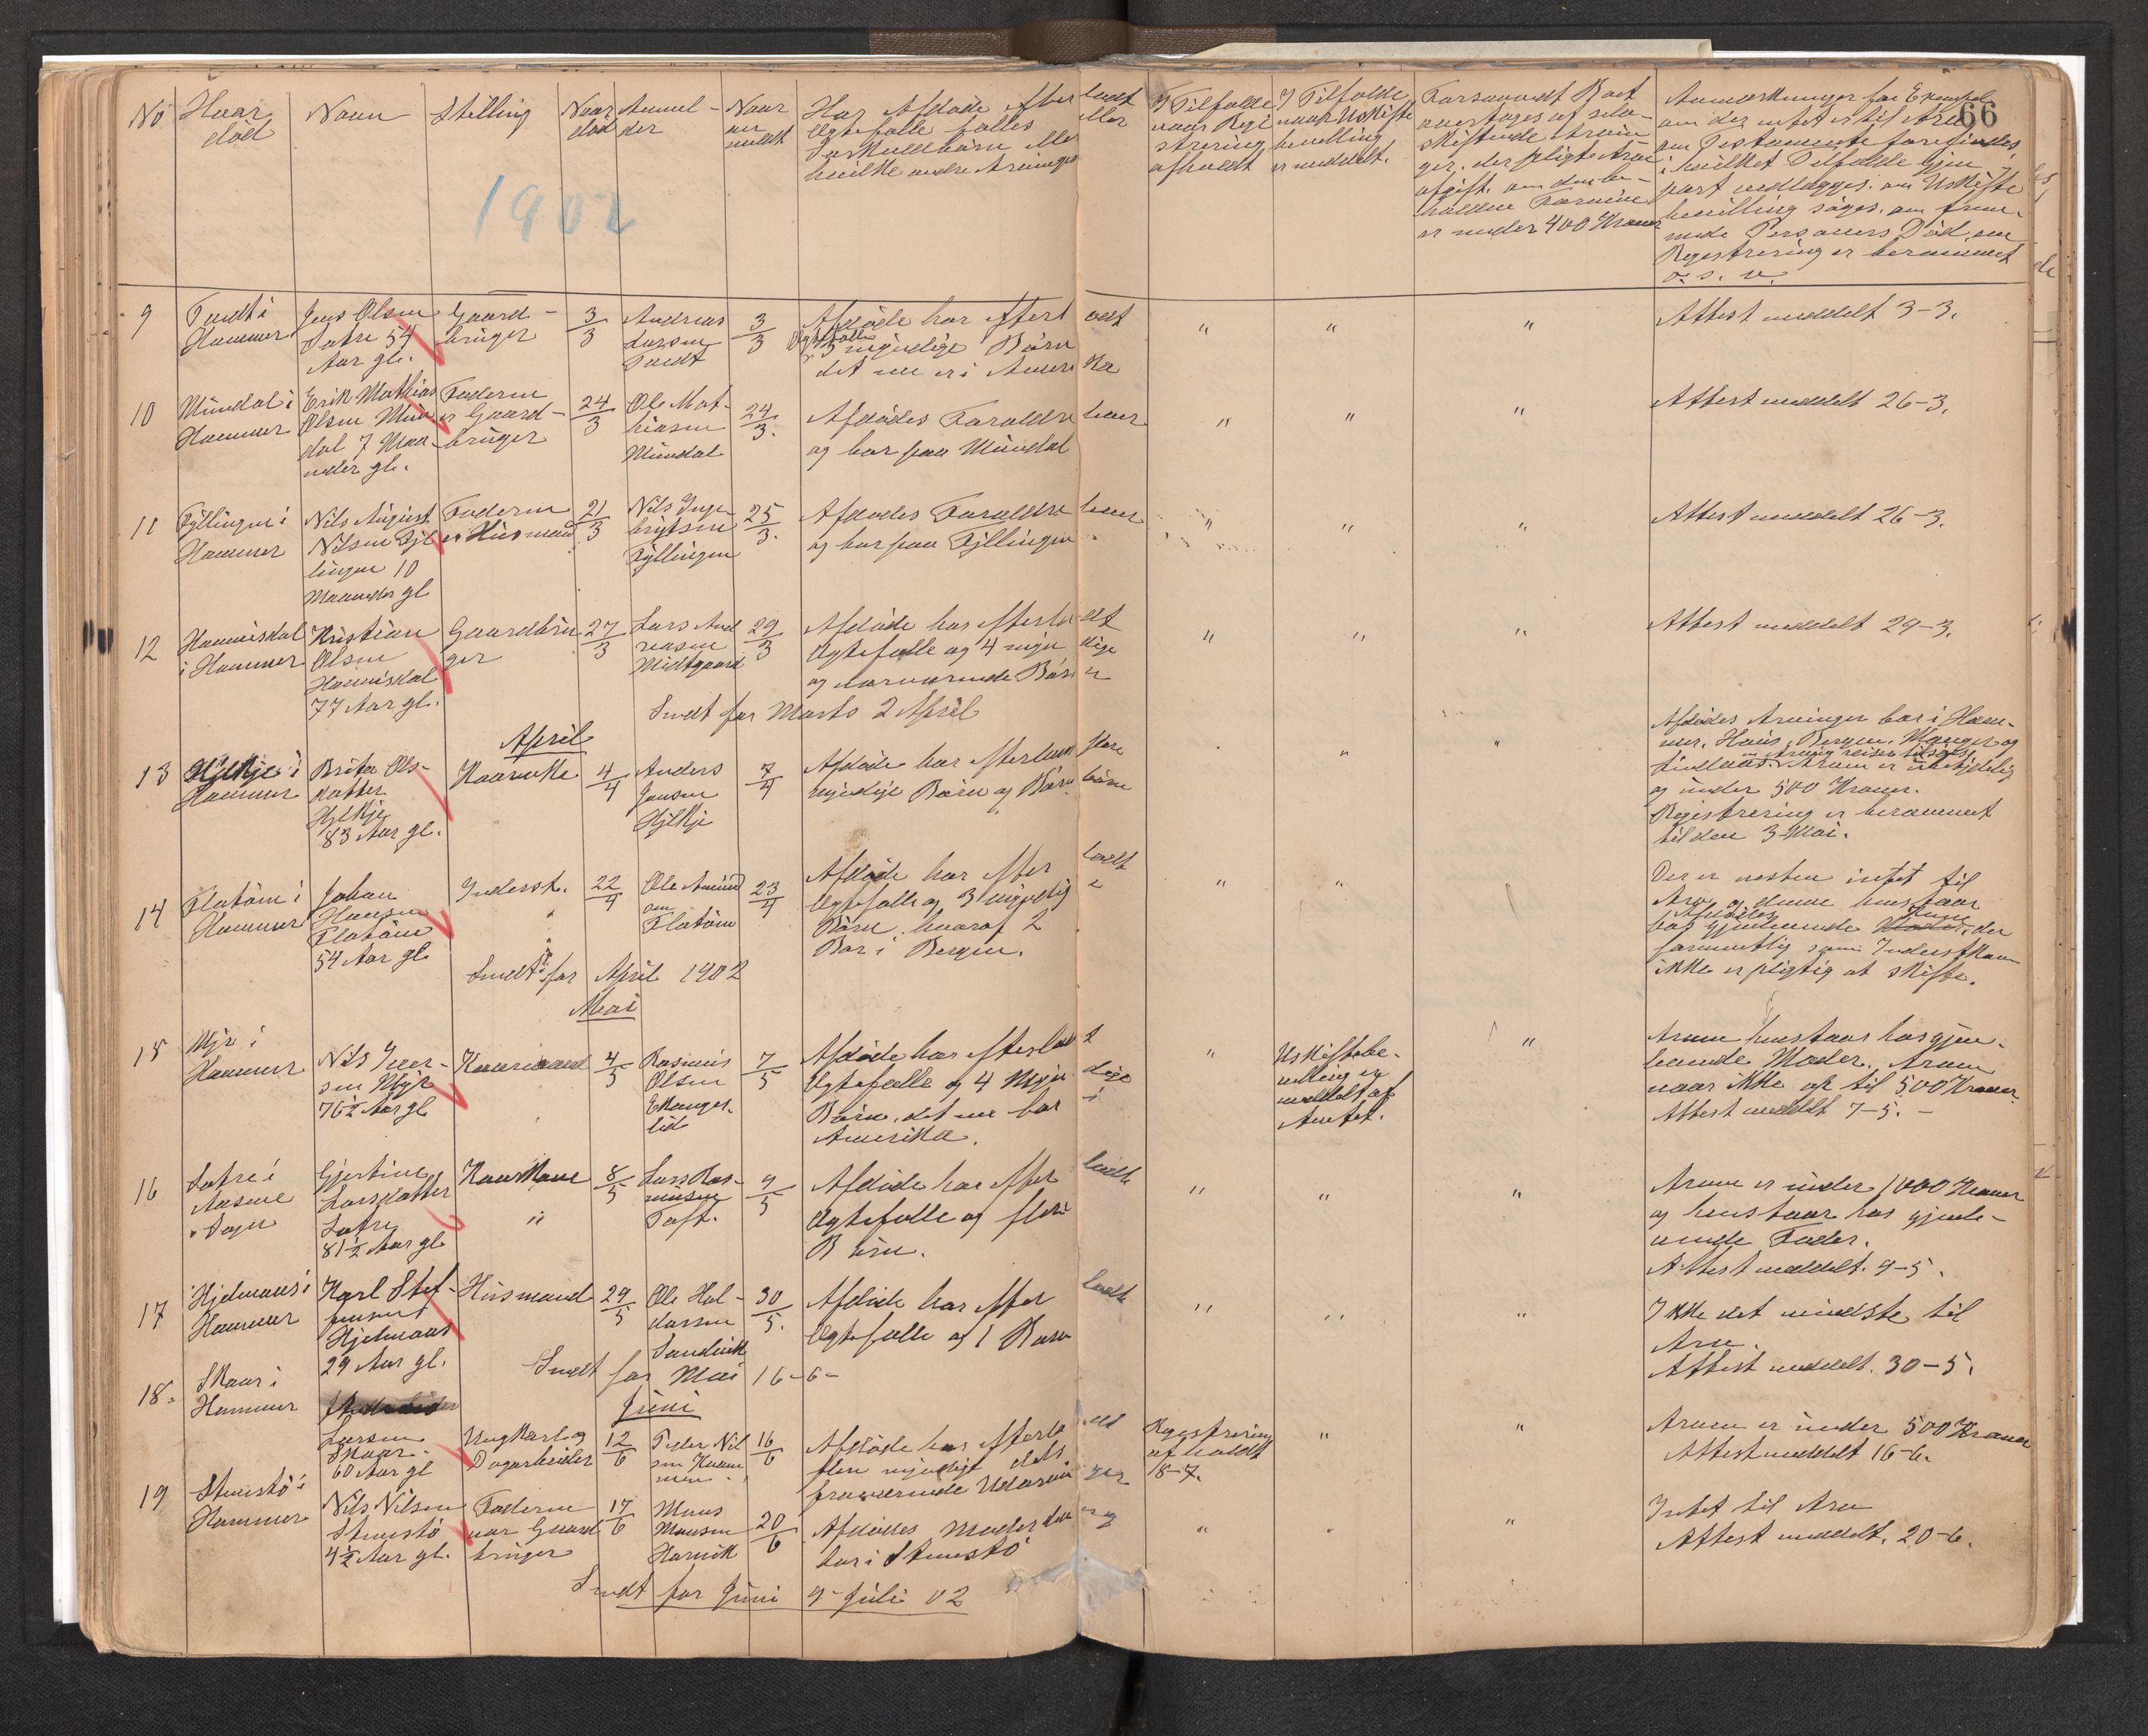 66
No
Hvor
död
Navn
Stilling
Naar
död
Anmel-
der
Naar
an
meldt
Har Afdöde efterladt
Ægtefælle fælles
Særkuldbörn eller
hvilke andre Arvinger
I Tilfælde
naar Regi
strering
afholdt
I Tilfælde
naar Uskifte
bevilling
er meddelt.
er under 400 Kroner
Anmærkninger for Exempel
om der intet er til Arv,
om Testamente forefindes
i hvilket Tilfælde Gjen
part vedlægges, om Uskifte
bevilling söges, om frem-
mede Personers Död, om
Registrering er berammet
o. s. v.
1902
9
Tuedt i
Hammer
Jens Olsen
Sætre 54
Aar gl.
Gaard-
bruger
3/3
Andreas
Larsen
Tuedt
3/3
Afdöde har efterladt
Ægtefælle
5 myndige Börn
det ene er i Amerika
"
"
"
Attest meddelt 3-3.
10
Mundal i
Hammer
Erik Mathias
Olsen Mun
dal 7 Maa-
neder gl.
Faderen
er Gaard-
bruger
24/3
Ole Mat-
hiasen
Mundal
24/3.
Afdödes Forældre lever
og bor paa Mundal
"
"
"
Attest meddelt 26-3.
11
Fyllingen i
Hammer
Nils August
Nilsen Fyl
lingen 10
Maaneder gl
Faderen
er Husmand
21/3
Nils Inge
brigtsen
Fyllingen
25/3.
Afdödes Forældre lever
og bor paa Fyllingen
"
"
"
Attest meddelt 26-3.
12
Hanisdal
i Hammer
Kristian
Olsen
Hanisdal
77 Aar gl.
Gaardbru
ger
27/3
Lars And
reasen
Midtgaard
29/3
Afdöde har efterladt
Ægtefælle og 4 myndige
og nærværende Börn
"
"
"
Attest meddelt 29-3.
Sendt for Marts 2 April
April
13
Hjelkje i
Hammer
Brita Ols-
datter
Hjelkje
83 Aar gl.
Kaarenke
4/4
Anders
Jensen
Hjelkje
7/4
Afdöde har efterladt flere
myndige Börn og Börnebörn
"
"
Afdödes Arvinger bor i Ham-
mer, Haus, Bergen, Manger og
og under 500 Kroner.
Registrering er berammet
til den 3 Mai.
14
Flatöen i
Hammer
Johan
Hansen
Flatöen
54 Aar gl.
Inderst.
22/4
Ole Amund
sen
Flatöen
23/4
Afdöde har efterladt
Ægtefælle og 3 myndige
Börn, hvoraf 2
Bor i Bergen.
"
"
Der er nesten intet til
Arv og denne henstaar
hos Afdödes gjenlevende Kone, der
formentlig som Inderstkone
ikke er pligtig at skifte.
Sendt for April 1902
Mai
15
Myr i
Hammer
Nils Iver-
sen Myr
76½ Aar gl
Kaarmand
4/5
Rasmus
Olsen
Eknæs-
lid
7/5
Afdöde har efterladt
Ægtefælle og 4 Myndige
Börn, det ene bor i
Amerika.
"
Uskiftebe-
villing er
meddelt af
Amtet.
"
Arven henstaar hos gjen-
levende Moder. Arven
naar ikke op til 500 Kroner.
Attest meddelt 7-5.-
16
Sætre i
Aasene
Sogn
Gjertine
Larsdatter
Sætre
81½ Aar gl
Kaarkone
"
8/5
Lars Ras-
musen
Toft.
9/5
Afdöde har efterladt
Ægtefælle og flere
Börn.
"
"
"
Arven er under 1000 Kroner
og henstaar hos gjenle-
vende Fader.
Attest meddelt. 9-5.
17
Hjelmaas i
Hammer
Karl Stef-
fensen
Hjelmaas
29 Aar gl.
Husmand
29/5
Ole Hal-
dorsen
Sandvik
30/5.
Afdöde har efterladt
Ægtefælle og 1 Barn
"
"
"
Ikke det mindste til
Arv.
Attest meddelt. 30-5.
Sendt for Mai 16-6-
Juni
18.
Skaar i
Hammer
Larsen
Skaar
60 Aar gl
Ungkarl og
Dagarbeider
12/6
Peder Nil
sen Ham
mer.
16/6
Afdöde har efterladt
flere myndige dels
fraværende Udarvinger
Registrering
afholdt
18-7.
"
"
Arven er under 500 Kroner
Attest meddelt 16-6.
19
Stenstö i
Hammer
Nils Nilsen
Stenstö
4½ Aar gl.
Faderen
var Gaard
bruger
17/6
Mons
Monsen
Hamik
20/6
Afdödes Moder lever og
bor i Stenstö
"
"
"
Intet til Arv
Attest meddelt. 20-6.
Sendt for Juni 9-Juli 02